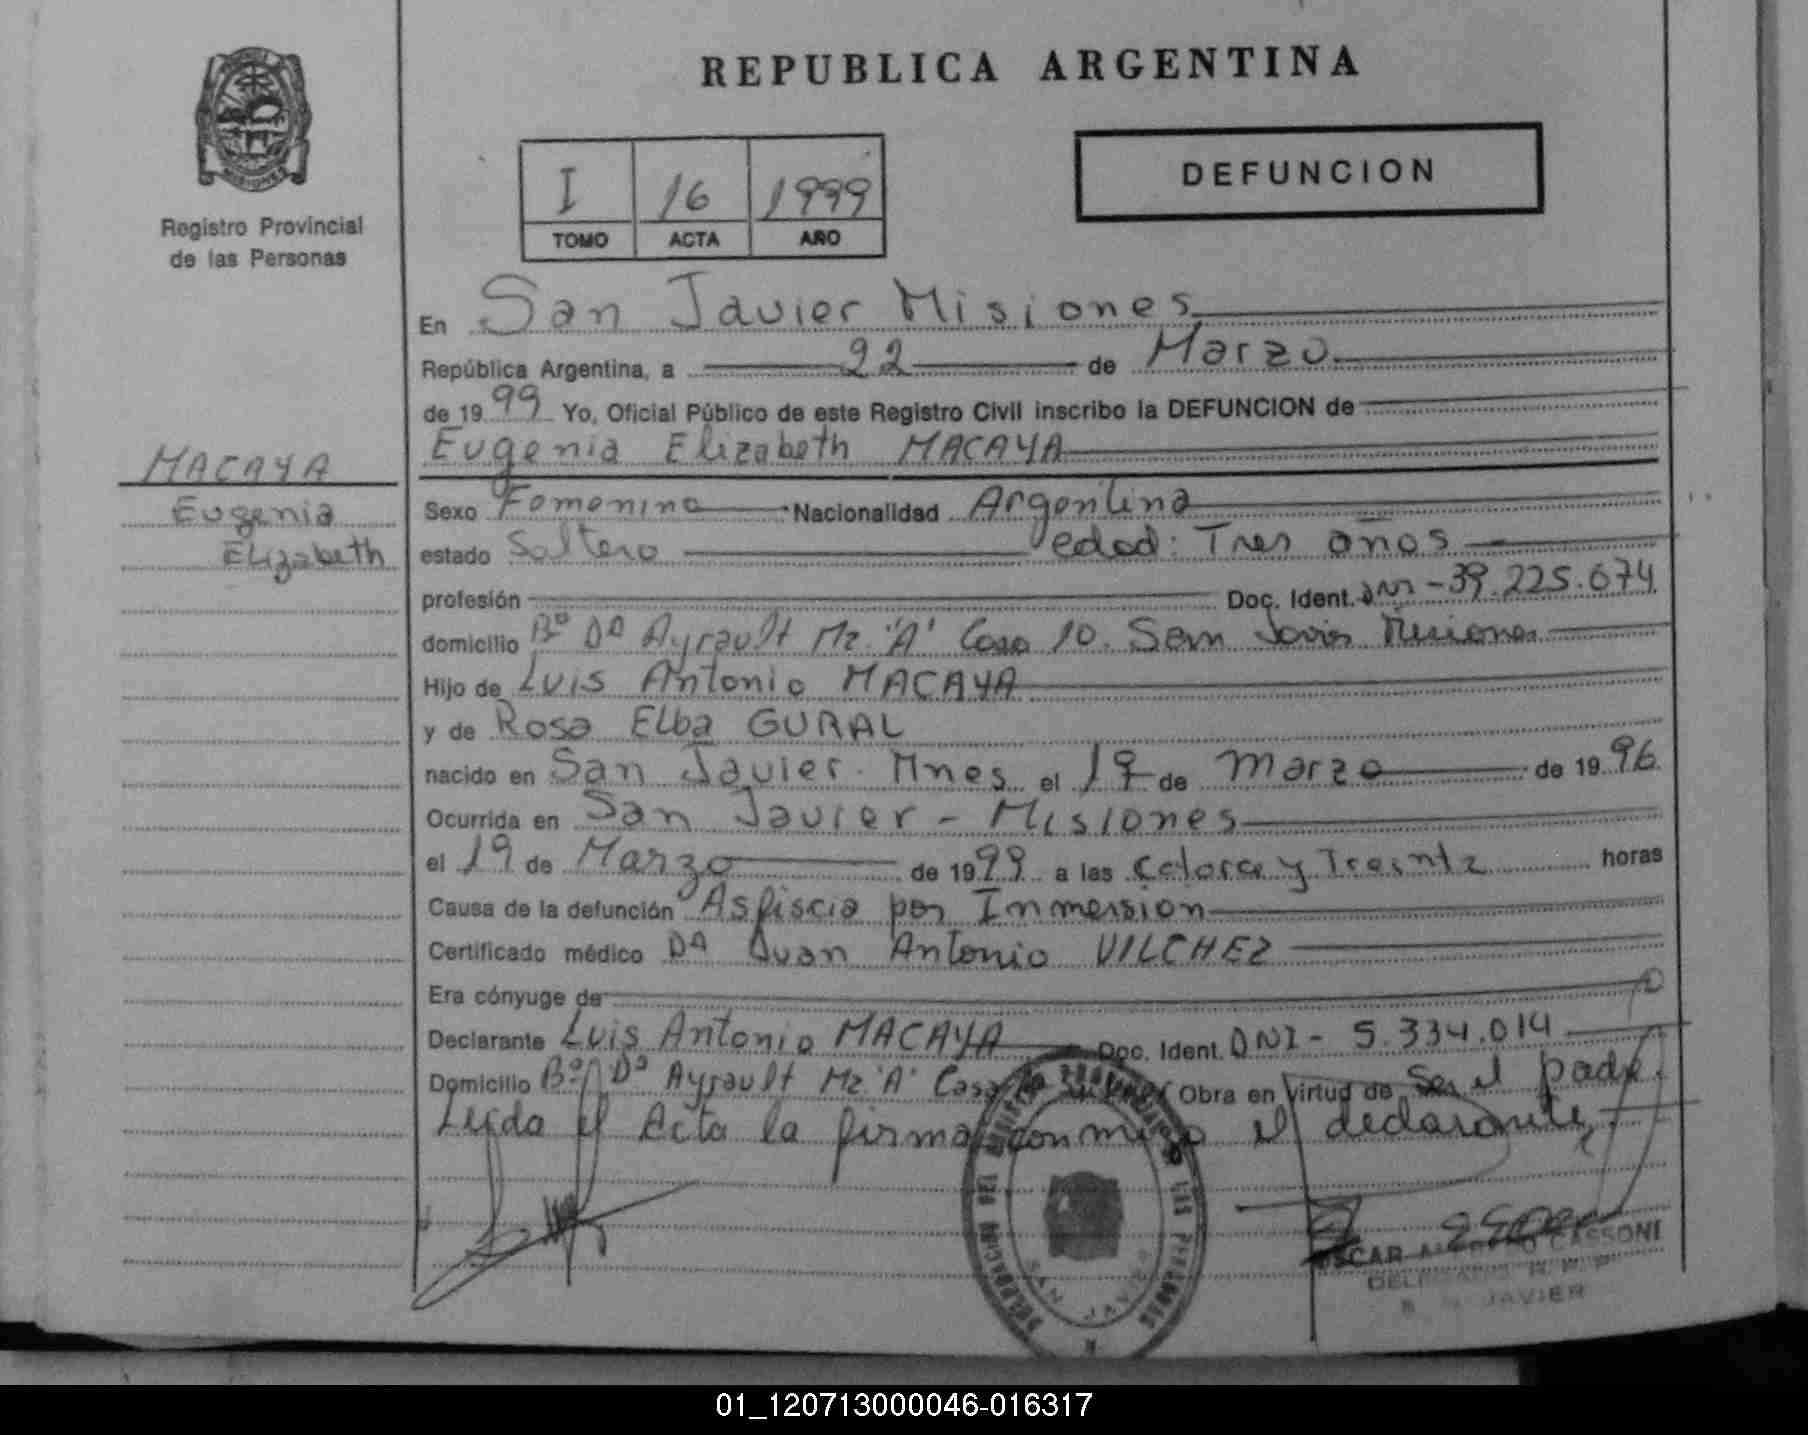 REPUBLICA ARGENTINA
MISIONES
Registro Provincial
de las Personas
I 16 1999
TOMO ACTA AÑO
DEFUNCION
MACAYA
Eugenia
Elizabeth
En San Javier Misiones
República Argentina, a 22 de Marzo
de 1999 Yo, Oficial Público de este Registro Civil inscribo la DEFUNCION de
Eugenia Elizabeth MACAYA
Sexo Femenino Nacionalidad Argentina
estado Soltero edad: Tres años
profesión Doc. Ident. DNI - 39.225.674
domicilio Bº Dº Ayrault Mz "A" Casa 10. San Javier Misiones
Hijo de Luis Antonio MACAYA
y de Rosa Elba GURAL
nacido en San Javier. Mnes el de Marzo de 1996
Ocurrida en San Javier - Misiones
el 19 de Marzo de 1999 a las Catorce y Treinta horas
Causa de la defunción Asfiscia por Inmersion
Certificado médico Juan Antonio VILCHEZ
Era cónyuge de
Declarante Luis Antonio MACAYA Doc. Ident. DNI - 5.334.014
Domicilio Bº Dº Ayrault Mz "A" Casa Obra en virtud de Ser el padre.
Leida el Acta la firma conmigo el declarante,
OSCAR ALFREDO CASSONI
DELEGADO R. P. P.
JAVIER
01_120713000046-016317